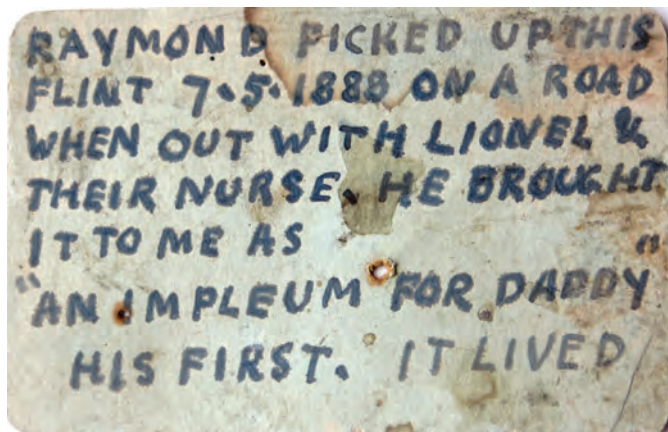 RAYMOND PICKED UP THIS
FLINT 7.5.1888 ON A ROAD
WHEN OUT WITH LIONEL &
THEIR NURSE. HE BROUGHT
IT TO ME AS
"AN IMPLEUM FOR DADDY"
HIS FIRST. IT LIVED